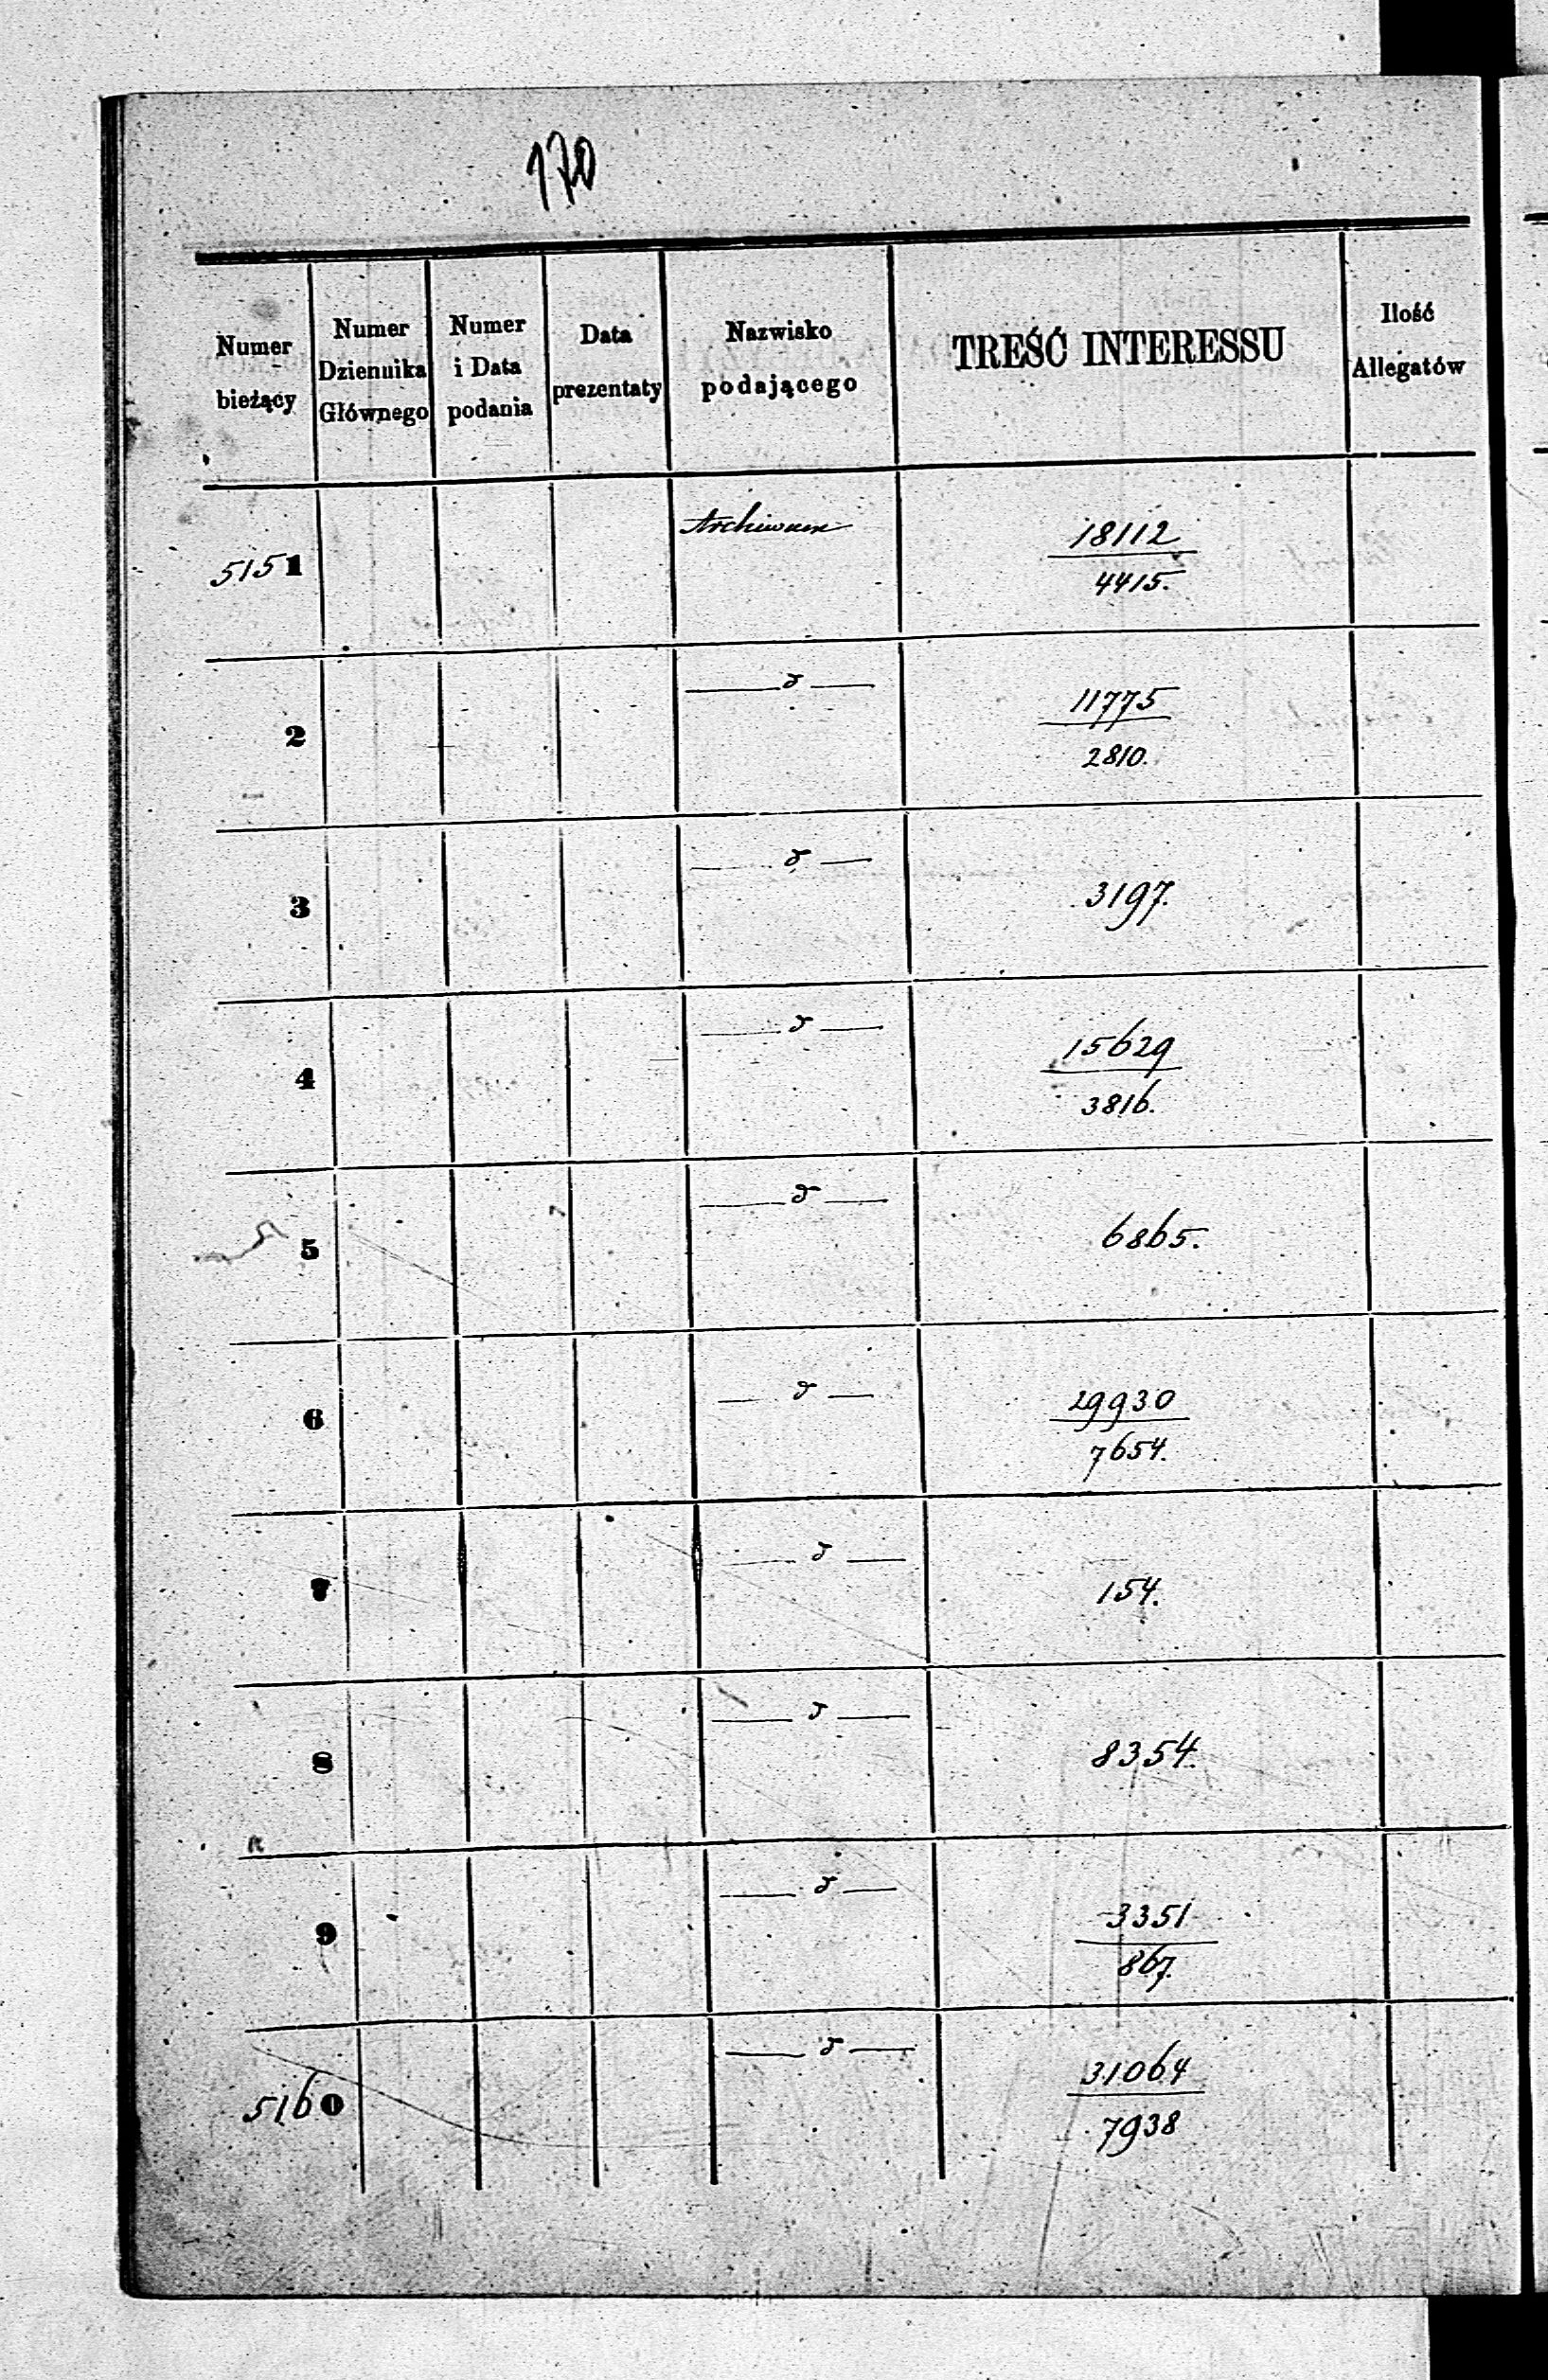 170
Numer bieżący
Numer Dziennika Głównego
Numer i Data podania
Data prezentaty
Nazwisko podającego
TREŚĆ INTERESSU
Ilość Allegatów
5151 Archiwum 18112
4415.
2 — d — 11775
2810.
3 — d — 3197.
4 — d — 15629
3816.
5 — d — 6865.
6 — d — 29930
7654.
7 — d — 154.
8 — d — 8354.
9 — d — 3351
867.
5160 — d — 31064
7938